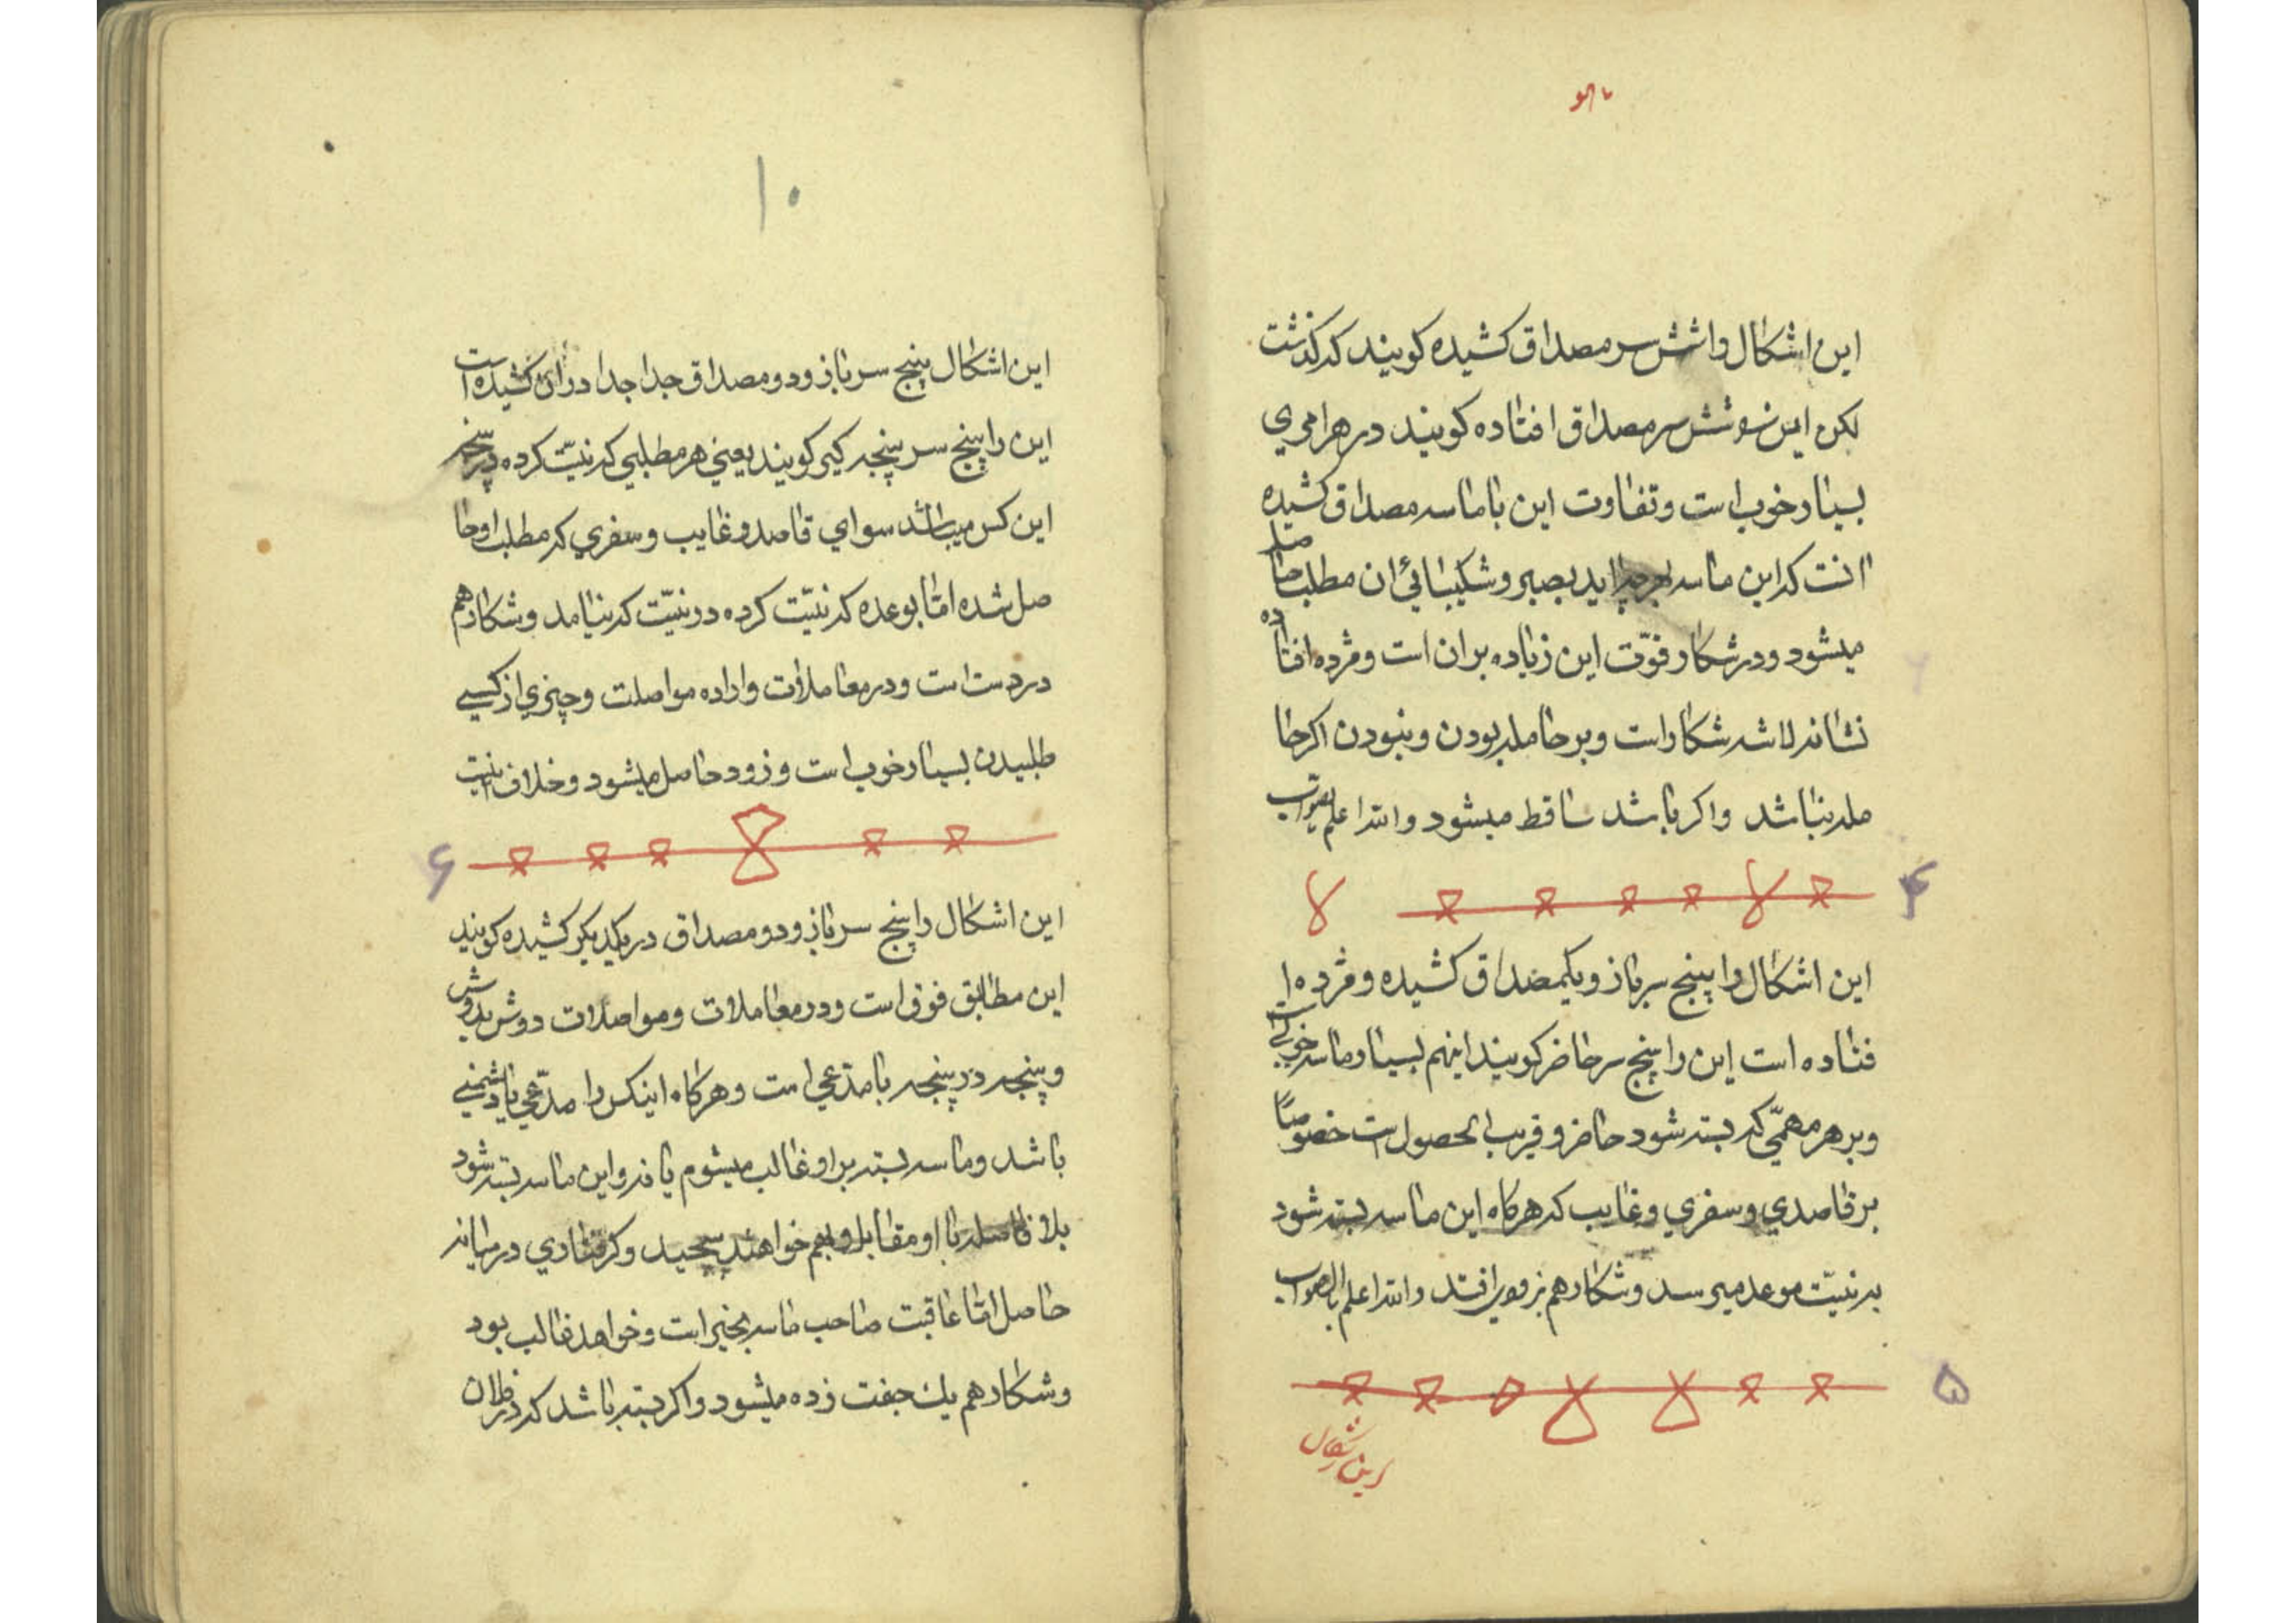 یا هو
این اشکال را شش سر مصداق کشیده کویند که کذشت
لکن این شش سر مصداق افتاده کویند در هر امری
بسیار خوب است و تفاوت این با ماسه مصداق کشیده
انست که این ماسه بصبر و شکیبائی ان مطلب حاصل
میشود و در شکار قوّت این زیاده بران است و مژده افتاده
نشانه لاشه شکار است و بر حامله بودن و نبودن اکر حا
مله نباشد و اکر باشد ساقط میشود والله اعلم بصواب
۴
این اشکال را پنج سرباز و یکمصداق کشیده و مژده ا
فتاده است این را پنج سر حاضر کویند اینهم بسیار ماسه خوبی است
و بر هر مهمّی که بسته شود حاضر و قریب الحصول است خصوصاً
بر قاصدی و سفری و غایب که هرکاه این ماسه بسته شود
به نیّت موعد میرسد و شکار هم بزودی افتد والله اعلم بالصواب
۵
این اشکال
۱۰
این اشکال پنج سرباز و دو مصداق جدا جدا در ان کشیده است
این را پنج سر پنجه کیر کویند یعنی هر مطلبی که نیّت کرده در
این کس میباشد سوای قاصد و غایب و سفری که مطلب او حا
صل شده امّا بوعده که نیّت کرده در نیّت که نیامد و شکار هم
در دست است و در معاملات و اراده مواصلت و چیزی از کسی
طلبیدن بسیار خوب است و زود حاصل میشود و خلاف نیست
۶
این اشکال را پنج سرباز و دو مصداق در یکدیکر کشیده کویند
این مطابق فوق است و در معاملات و مواصلات دوش بدوش
و پنجه در پنجه با مدّعی است و هرکاه اینکس را مدّعی یا دشمنی
باشد و ماسه بسته بر او غالب میشوم یا نه و این ماسه بسته شود
بلا فاصله با او مقابل و بهم خواهند و کرفتاری در میانه
حاصل امّا عاقبت صاحب ماسه بخیر است و خواهد غالب بود
و شکار هم یك جفت زده میشود و اکر بسته باشد که در فلان